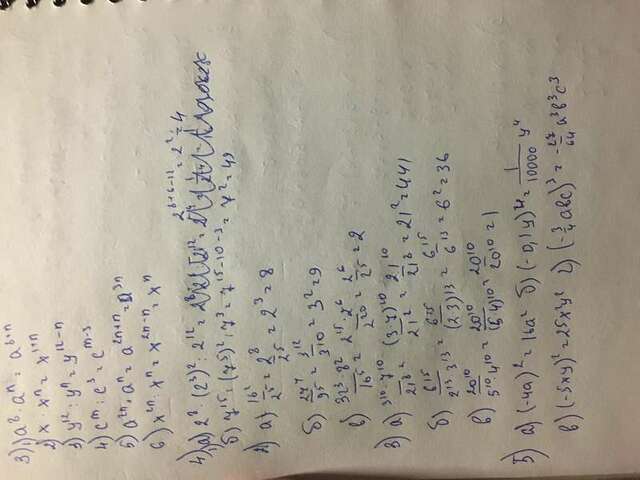 3) 1) a⁸ · aⁿ = a⁸⁺ⁿ
2) x · xⁿ = x¹⁺ⁿ
3) y¹² : yⁿ = y¹²⁻ⁿ
4) cᵐ : c³ = cᵐ⁻³
5) a²ⁿ · aⁿ = a²ⁿ⁺ⁿ = a³ⁿ
6) x²ⁿ : xⁿ = x²ⁿ⁻ⁿ = xⁿ
4) 1) а) 2⁸ · (2³)² : 2¹² = 2⁸⁺⁶⁻¹² = 2² = 4
б) 7¹⁵ : (7⁵)² : 7³ = 7¹⁵⁻¹⁰⁻³ = 7² = 49
2) а) 16²/2⁵ = 2⁸/2⁵ = 2³ = 8
б) 27⁴/9⁵ = 3¹²/3¹⁰ = 3² = 9
в) 32³ · 8²/16⁵ = 2¹⁵ · 2⁶/2²⁰ = 2
3) а) 3¹⁰ · 7¹⁰/21⁸ = (3·7)¹⁰/21⁸ = 21¹⁰/21⁸ = 21² = 441
б) 6¹⁵/2¹³ · 3¹³ = 6¹⁵/(2·3)¹³ = 6¹⁵/6¹³ = 6² = 36
в) 20¹⁰/5¹⁰ · 4¹⁰ = 20¹⁰/(5·4)¹⁰ = 20¹⁰/20¹⁰ = 1
5) а) (-4a)² = 16a² б) (-0,1y)⁴ = 1/10000 y⁴
в) (-5xy)² = 25x²y² г) (-3/4 abc)³ = -27/64 a³b³c³